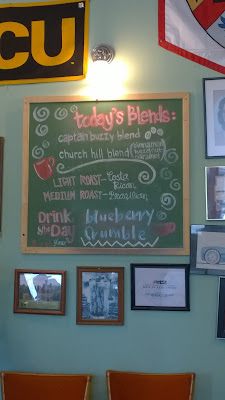 CU
today's Blends:
captain buzzy blend
church hill blend
cinnamon
hazelnut
caramel
LIGHT ROAST - Costa
Rican
MEDIUM ROAST - Brazilian
Drink
of the
DAY
blueberry
Crumble